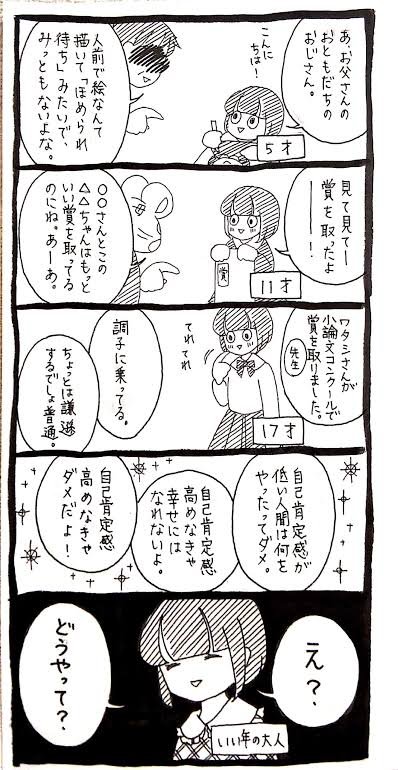 あ、お父さんの
おともだちの
おじさん。
こんに
ちは!
5才
人前で絵なんて
描いて「ほめられ
待ち」みたいで、
みっともないよな。
見て見てー
賞を取ったよ
ーーー!
賞
11才
〇〇さんとこの
△△ちゃんはもっと
いい賞を取てる
のにね。あーあ。
ワタシさんが
小論文コンクールで
賞を取りました。
先生
てれ
てれ
17才
調子に乗ってる。
ちょっとは謙遜
するでしょ普通。
自己肯定感が
低い人間は何を
やったってダメ。
自己肯定感
高めなきゃ
幸せには
なれないよ。
自己肯定感
高めなきゃ
ダメだよ!
え?
いい年の大人
どうやって?